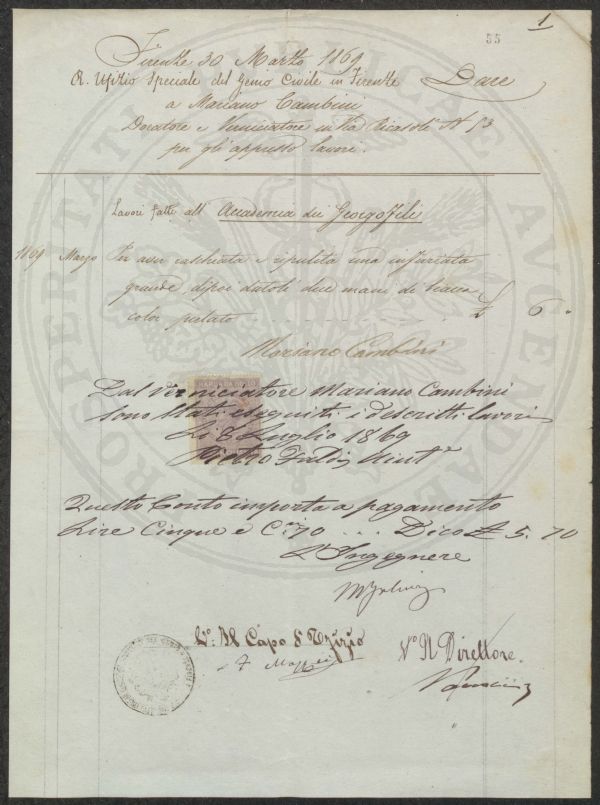 1
55
Firenze 30 Marzo 1869
R. Ufizio Speciale del Genio Civile in Firenze Dare
a Mariano Cambini
Doratore e Verniciatore in Via Ricasoli N 53
per gli appresso lavori.
Lavori fatti all' Accademia dei Georgofili
1869 Marzo Per aver raschiata e ripulita una inferriata
grande di poi datoli due mani di
color £ 6 "
Mariano Cambini
MARCA DA BOLLO
Dal Verniciatore Mariano Cambini
sono stati eseguiti i descritti lavori
Li 8 Luglio 1869
Pietro
Questo Conto importa a pagamento
Lire Cinque e C. 70 ... Dico £ 5. 70
L'Ingegnere
Vo. Il Capo d'Ufizio
Vo Il Direttore
PROSPERITATI PUBLICAE AUGENDAE